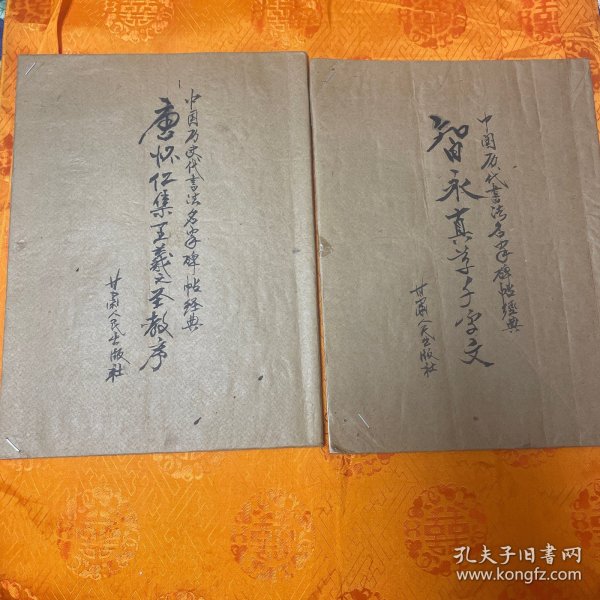 中国历史代书法名家碑帖经典
唐怀仁集王羲之圣教序
甘肃人民出版社
中国历代书法名家碑帖经典
智永真草千字文
甘肃人民出版社
孔夫子旧书网
www.kongfz.com